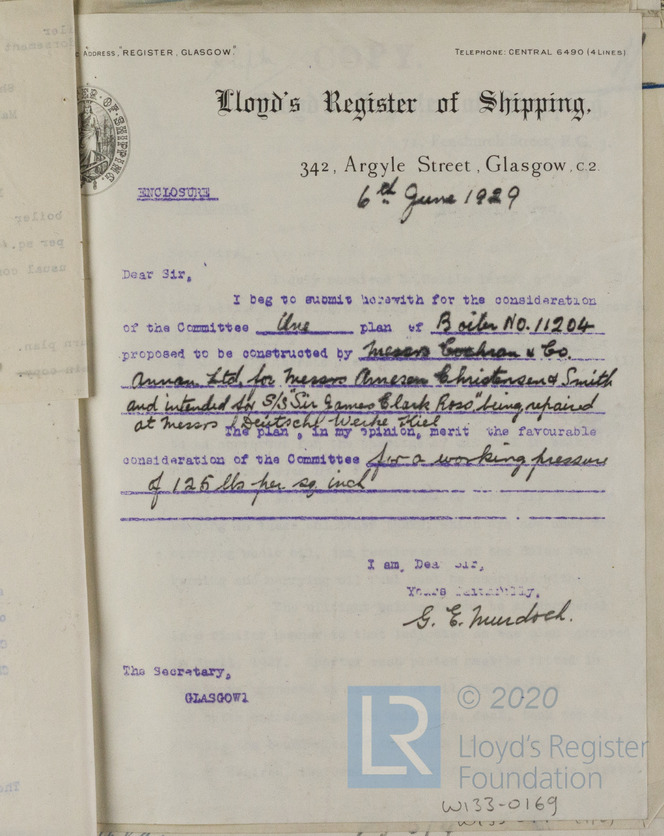 ADDRESS, "REGISTER, GLASGOW."
TELEPHONE: CENTRAL 6490 (4 LINES)
Lloyd's Register of Shipping,
342, Argyle Street, Glasgow, C.2.
ENCLOSURE
6th June 1929
Dear Sir,
I beg to submit herewith for the consideration
of the Committee One plan of Boiler No. 11204
proposed to be constructed by Messrs Cochran & Co.
Annan Ltd, for Messrs Amesen Christensen & Smith
and intended for S/S "Sir James Clark Ross" being repaired
at Messrs Deutschl Werke Kiel
The plan, in my opinion, merit the favourable
consideration of the Committee for a working pressure
of 125 lbs per sq. inch
I am, Dear Sir,
Yours faithfully,
G. E. Murdoch.
The Secretary,
GLASGOW1
LR
© 2020
Lloyd's Register
Foundation
W133-0169